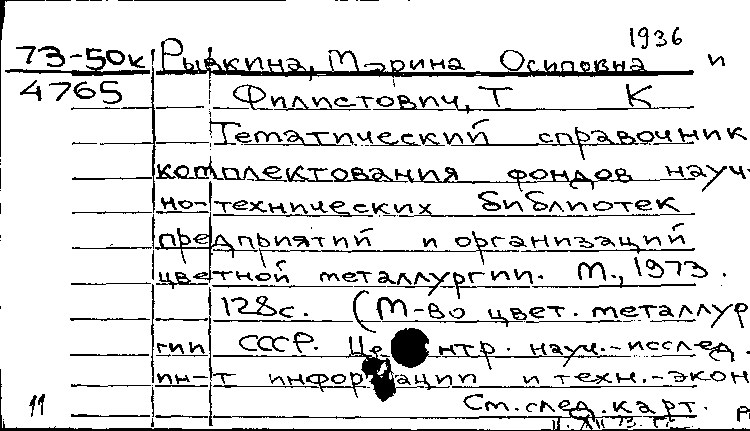 1936
73-50к Рывкина, Марина Осиповна и
4765 Филистович, Т К
Тематический справочник
комплектования фондов науч-
но-технических библиотек
предприятий и организаций
цветной металлургии. М., 1973.
128с. (М-во цвет. металлур
гии СССР. Центр. науч.-исслед.
ин-т информации и техн.-экон
См. след. карт.
11